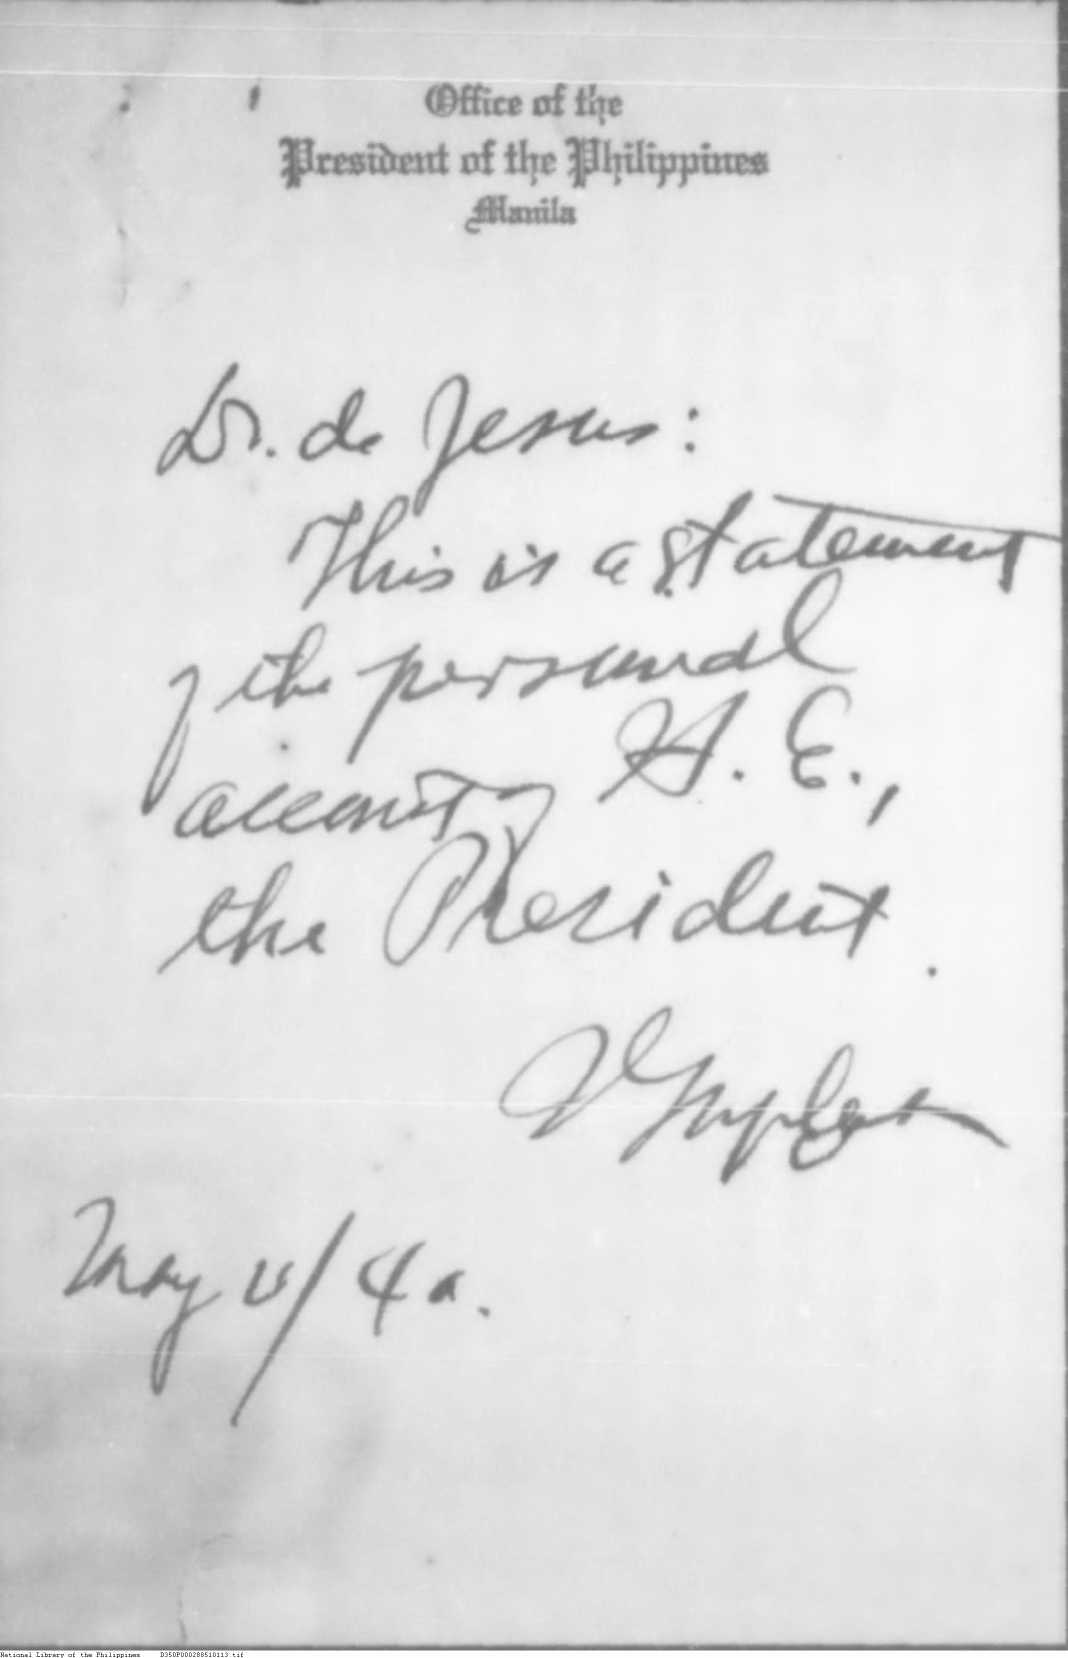 Office of the
President of the Philippines
Manila
Dr. de Jesus:
This is a statement
of the personal
account of H. E.,
the President.
May 11/40.
National Library of the Philippines D350P000288510113.tif